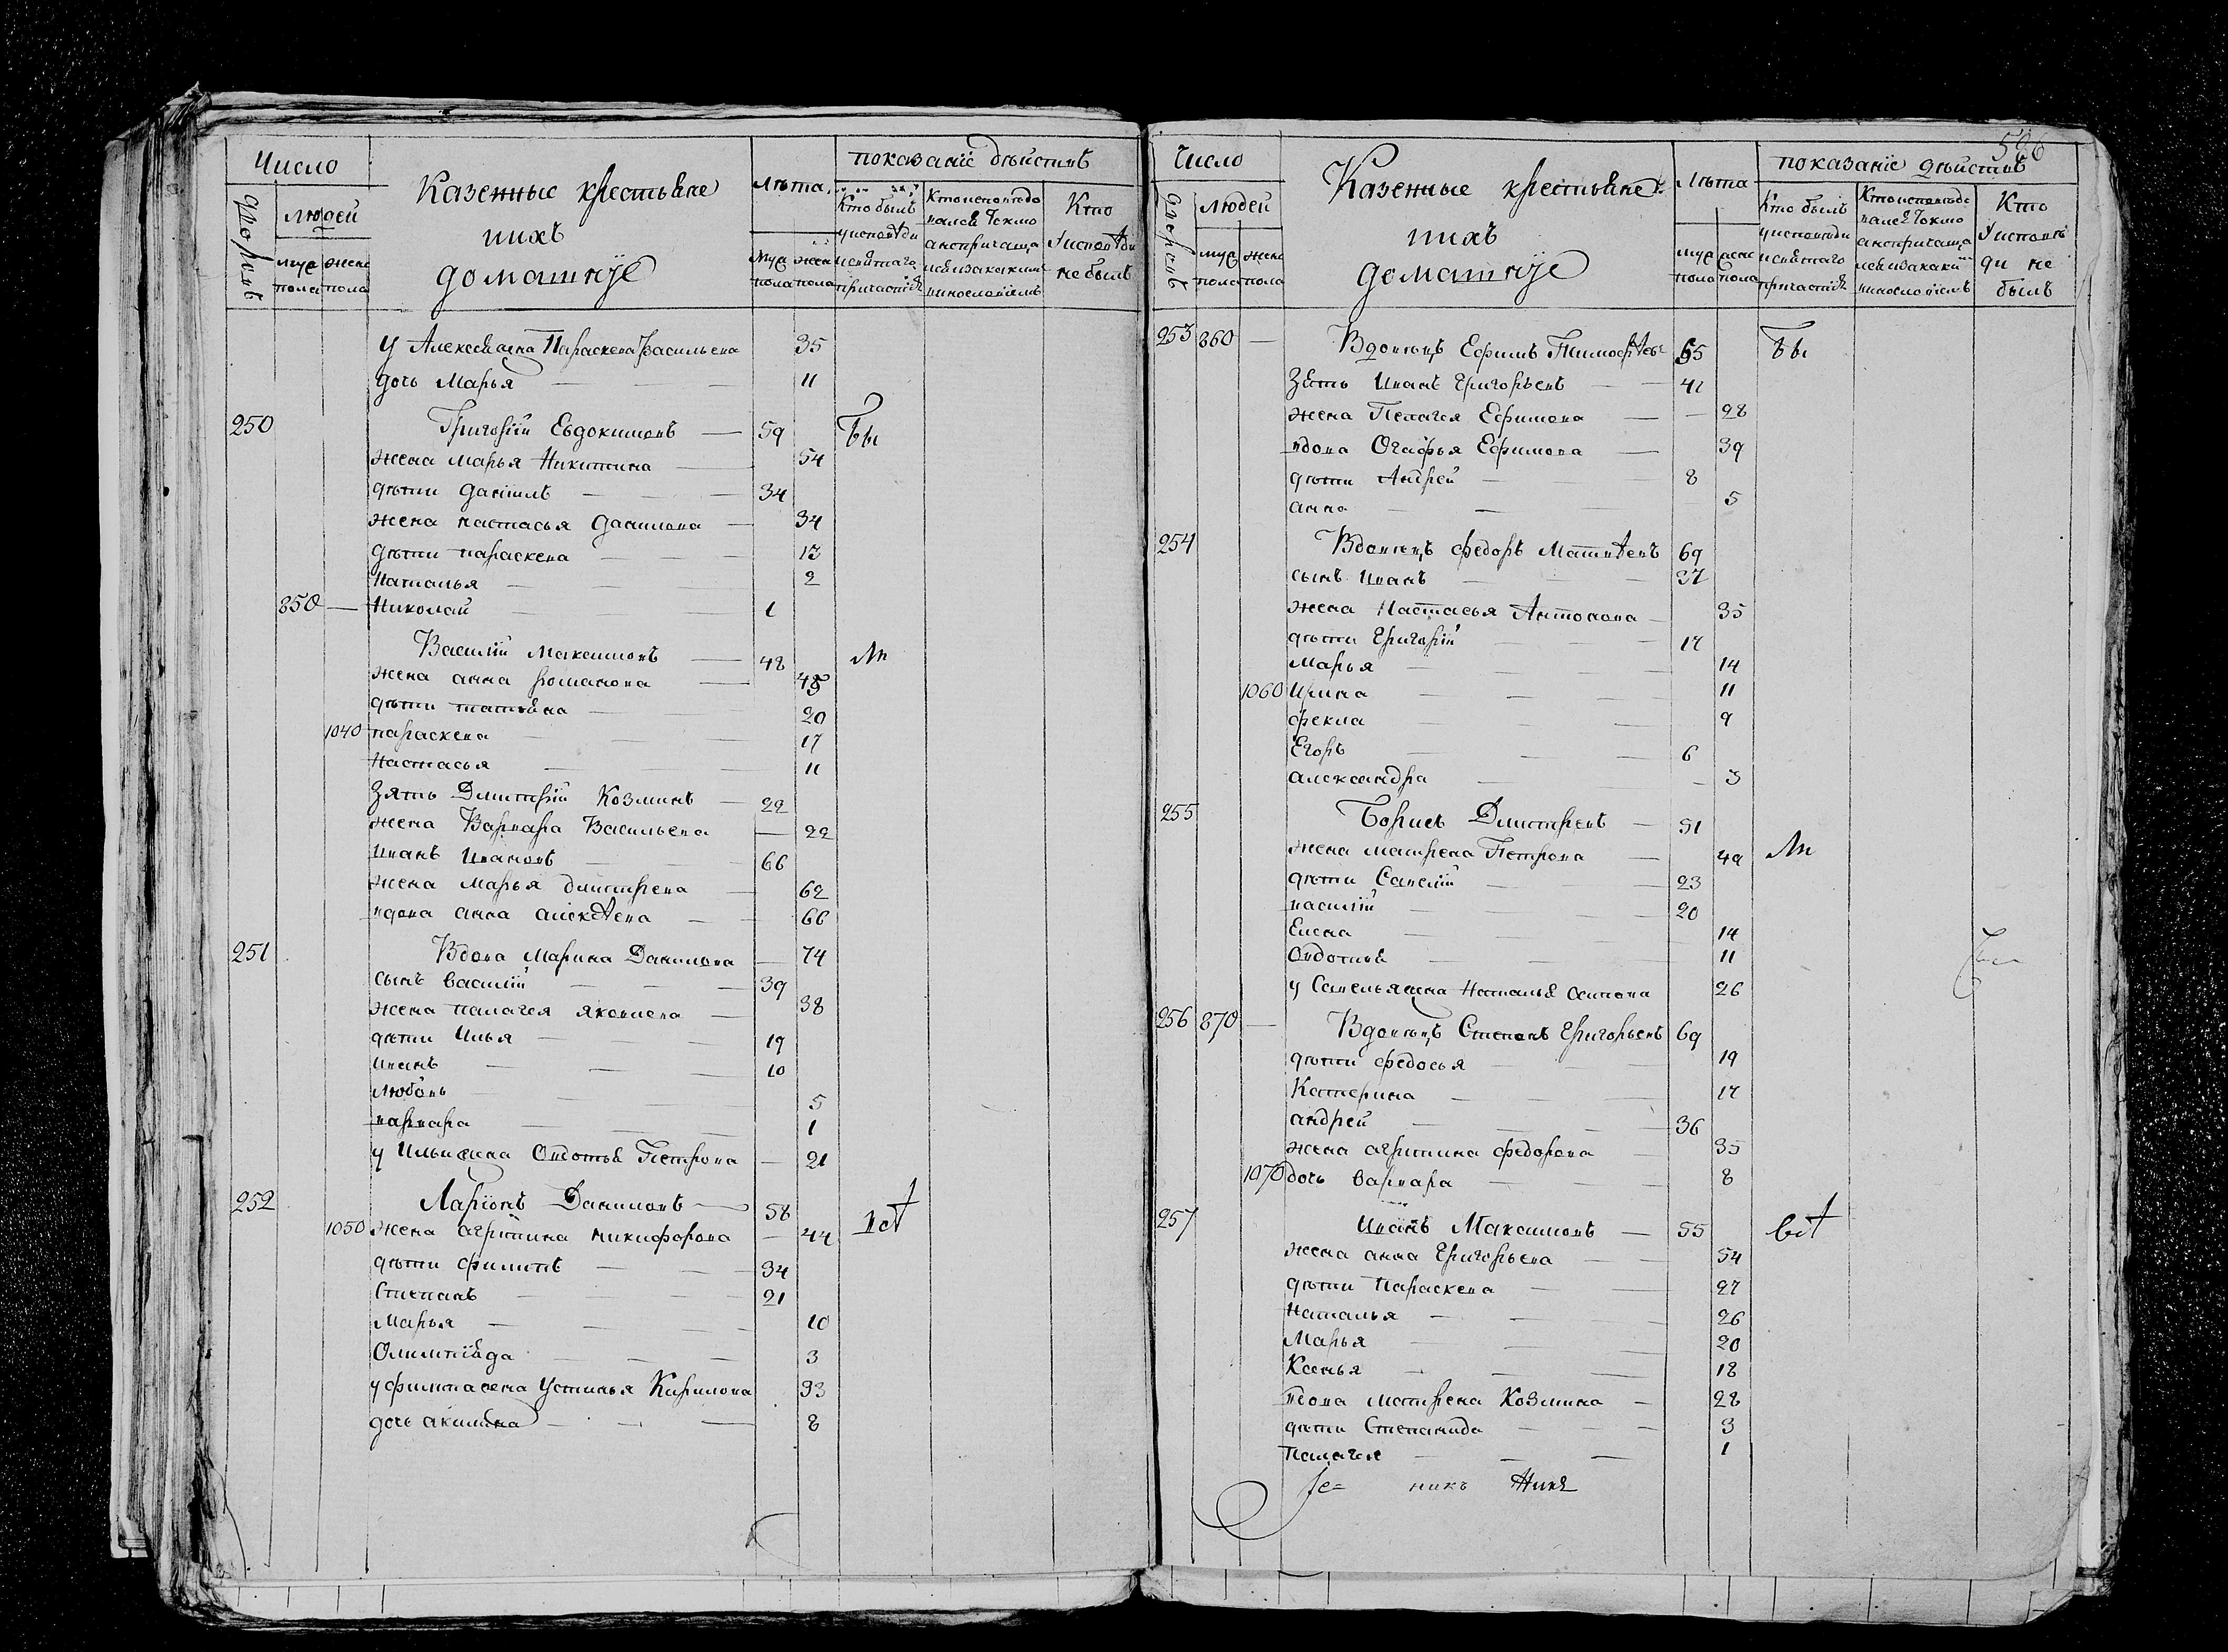 Число
Казенные крестьяне
ихъ
домашнѣе
лѣта
показанiе дѣйствъ
дворовъ
людей
муж пола
жен пола
муж пола
жен пола
Кто былъ у исповѣди и святаго причастiя
Кто исповѣдовался токмо а не причащался и за какимъ винословiемъ
Кто у исповѣди не былъ
у Алексѣя жена Параскева Васильева 35
дочь Марья — 11
250 Григорiй Евдокимовъ — 59 бы
жена Марья Никитина — 54
дѣти Данiилъ — 34
жена настасья Данилова — 34
дѣти параскева — 13
Наталья — 2
850 — Николай — 1
Василiй Максимовъ — 48 ли
жена анна романова — 45
дѣти татьяна — 20
1040 параскева — 17
Настасья — 11
Зять Дмитрiй Козминъ — 22
жена Варвара Васильева — 22
Иванъ Ивановъ — 66
жена Марья дмитрева — 62
вдова анна алексѣева — 66
251 Вдова Марина Данилова — 74
сынъ василiй — 39
жена палагея яковлева — 38
дѣти Илья — 19
Иванъ — 10
любовь — 5
варвара — 1
у Ильи жена Овдотья Петрова — 21
252 Ларiонъ Даниловъ — 58 всѣ
1050 жена агрипина никифорова — 44
дѣти филипъ — 34
Степанъ — 21
Марья — 10
Олимпiяда — 3
у филипа жена Устинья Кирилова 33
дочь акилина — 8
586
Число
Казенные крестьяне
ихъ
домашнѣе
лѣта
показанiе дѣйствъ
дворовъ
людей
муж пола
жена пола
муж пола
жене пола
Кто былъ у исповѣди и святаго причастiя
Кто исповѣдовался токмо а не причащался и за какимъ винословiемъ
Кто у исповѣди не былъ
253 860 — Вдовецъ Ефимъ Тимофѣевъ 65 бы
Зять Иванъ Григорьевъ — 41
жена Пелагея Ефимова — 28
вдова Огафья Ефимова — 39
дѣти Андрей — 8
анна — 5
254 Вдовецъ федоръ Матвѣевъ 69
сынъ Иванъ — 37
жена Настасья Антонова — 35
дѣти Григорiй — 17
Марья — 14
1060 Ирина — 11
фекла — 9
Егоръ — 6
александра — 3
255 Борисъ Дмитревъ — 51
жена матрена Петрова — 49 ли
дѣти Савелiй — 23
василiй — 20
Елена — 14
Овдотья — 11
у Савелья жена Наталья Осипова 26
256 870 — Вдовецъ Степанъ Григорьевъ 69
дѣти федосья — 19
Катерина — 17
андрей — 36
жена агрипина федорова — 35
1070 дочь варвара — 8
257 Иванъ Максимовъ — 55 всѣ
жена анна Григорьева — 54
дѣти Параскева — 27
Наталья — 26
Марья — 20
Ксенья — 18
вдова матрена Козмина — 28
дѣти Степанида — 3
Палагея — 1
никъ